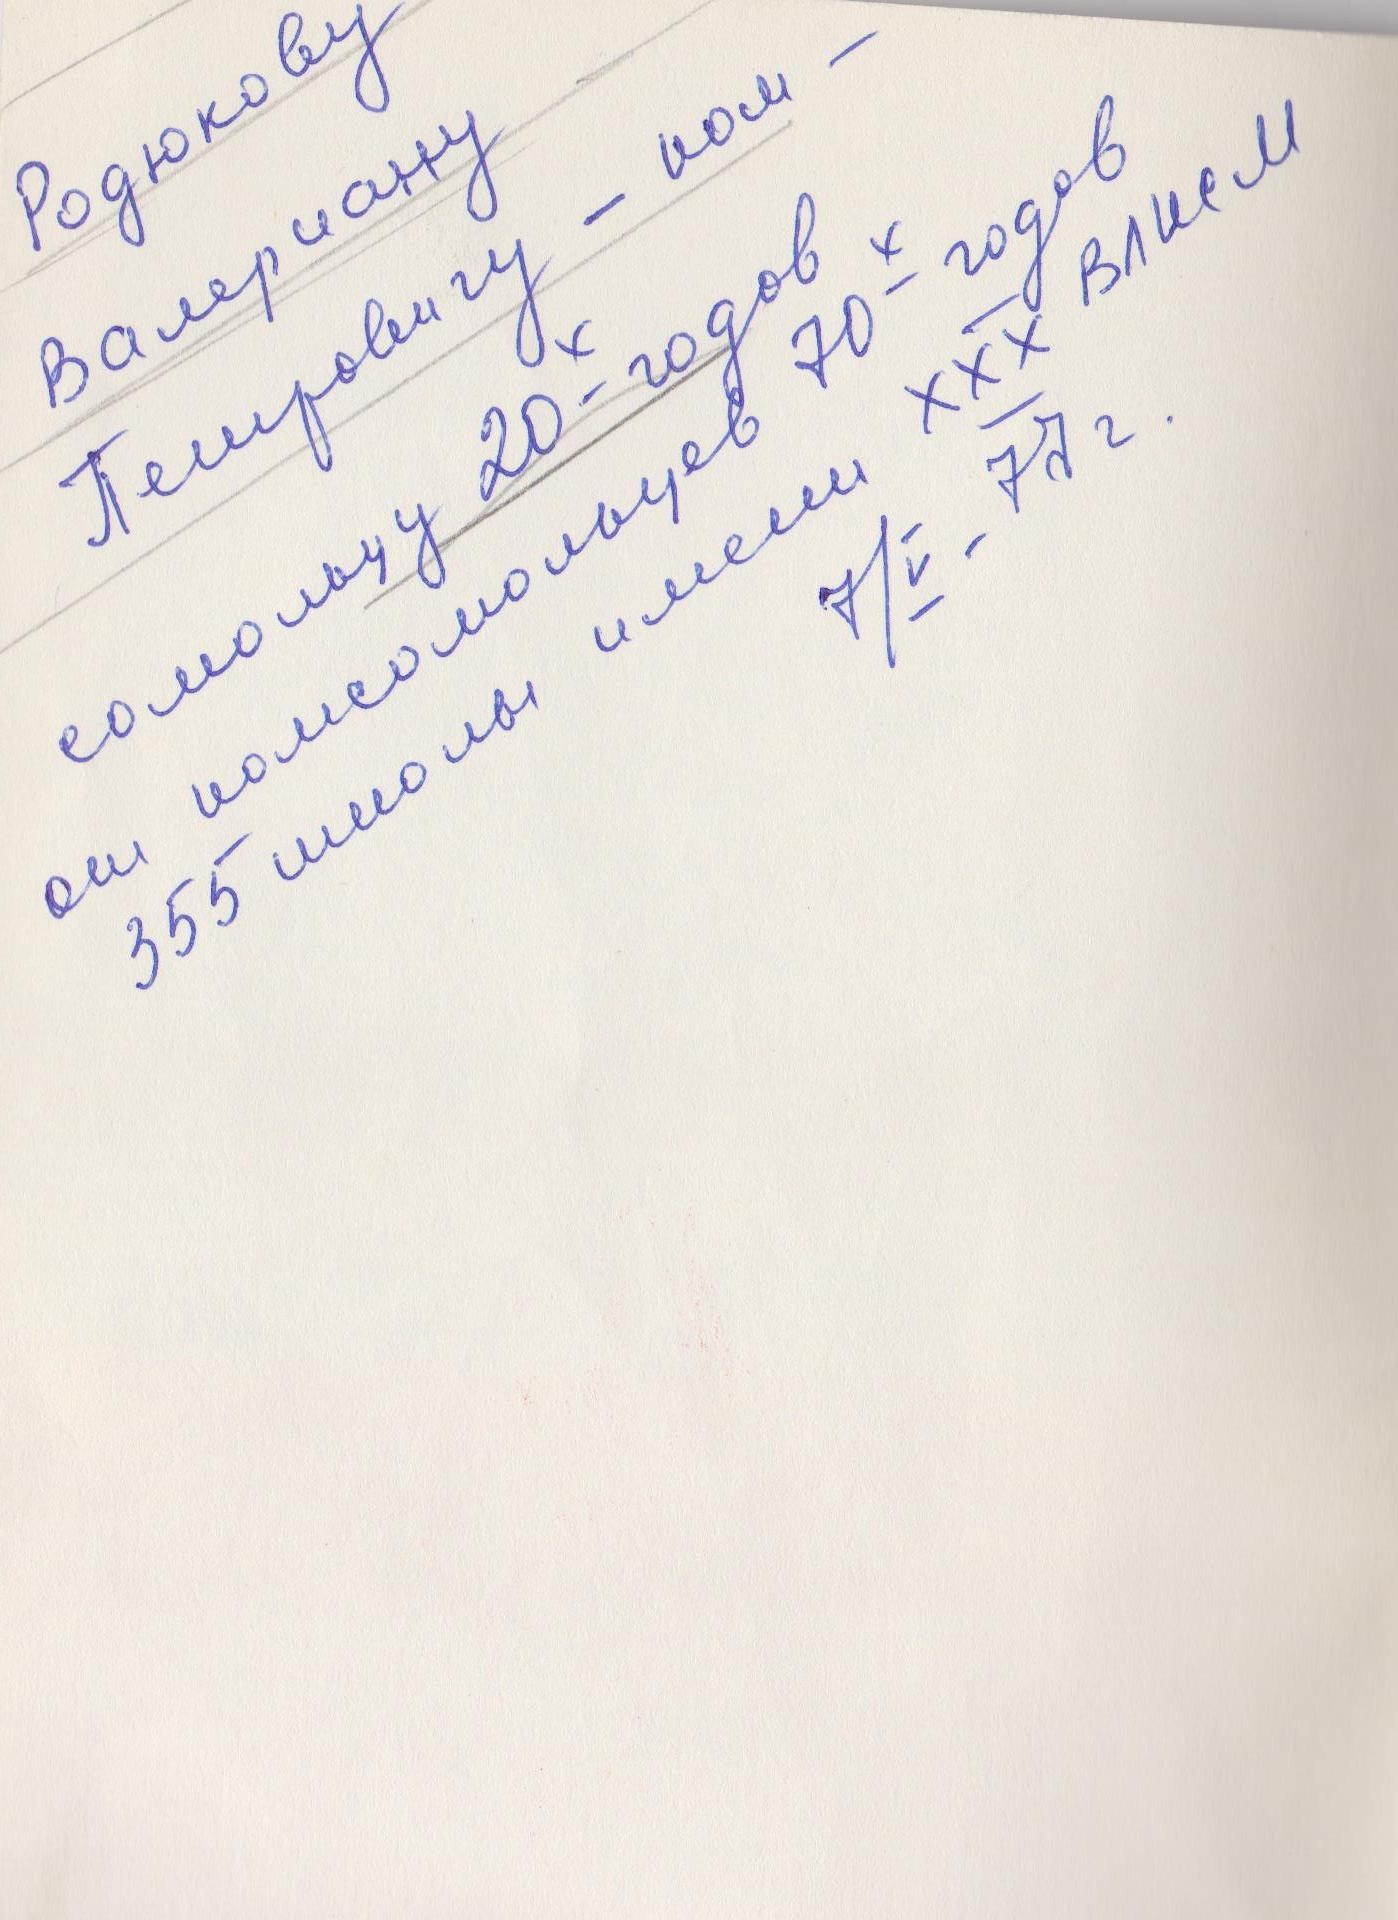 Родюкову
Валериану
Петровичу – ком-
сомольцу 20-х годов
от комсомольцев 70-х годов
355 школы имени XXX ВЛКСМ
7/V - 77 г.